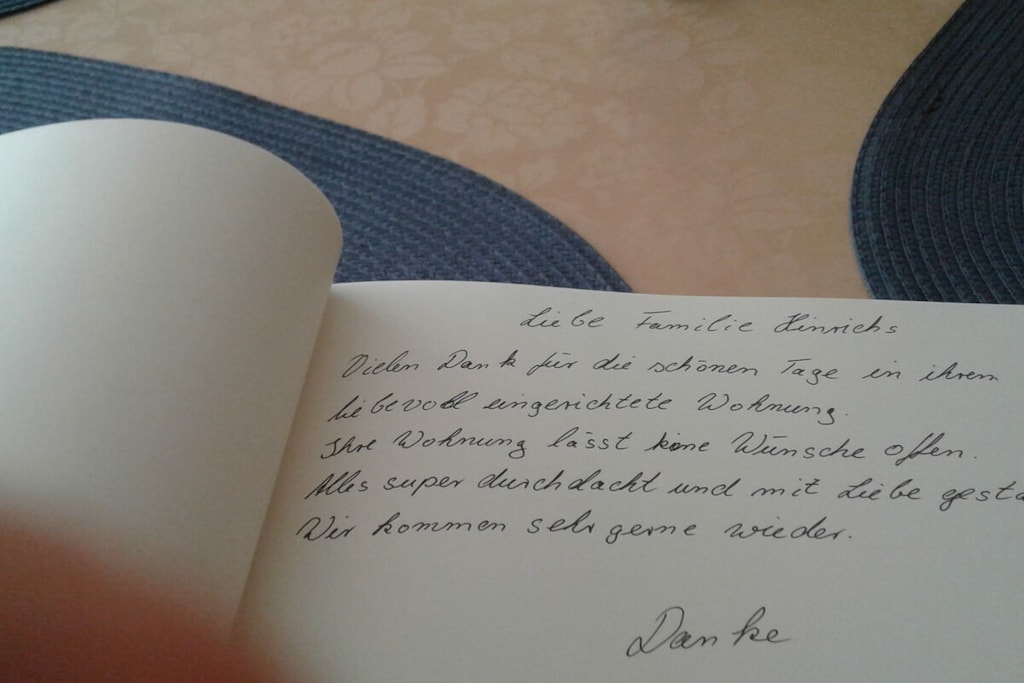 Liebe Familie Hinrichs
Vielen Dank für die schönen Tage in ihrem
liebevoll eingerichtete Wohnung.
Ihre Wohnung lässt keine Wünsche offen.
Alles super durchdacht und mit Liebe gesta
Wir kommen sehr gerne wieder.
Danke